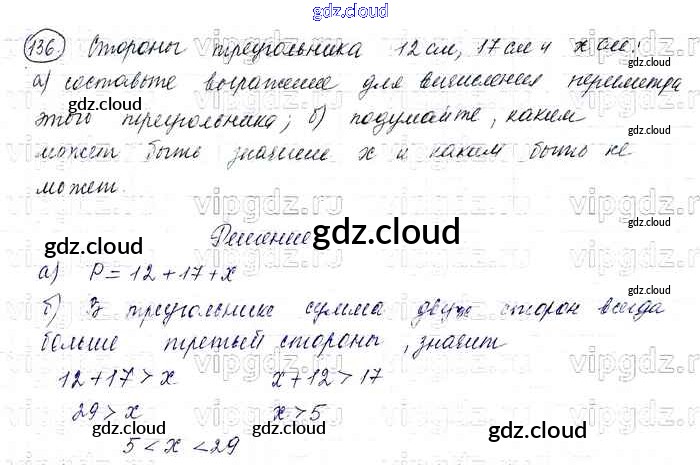 gdz.cloud
136. Стороны треугольника 12 см, 17 см и x см.
а) составьте выражение для вычисления периметра
этого треугольника; б) подумайте, каким
может быть значение x и каким быть не
может.
Решение
а) P = 12 + 17 + x
б) В треугольнике сумма двух сторон всегда
больше третьей стороны, значит
12 + 17 > x x + 12 > 17
29 > x x > 5
5 < x < 29
gdz.cloud
gdz.cloud
gdz.cloud
gdz.cloud
gdz.cloud
gdz.cloud
gdz.cloud
gdz.cloud
gdz.cloud
gdz.cloud
gdz.cloud
vipgdz.ru
vipgdz.ru
vipgdz.ru